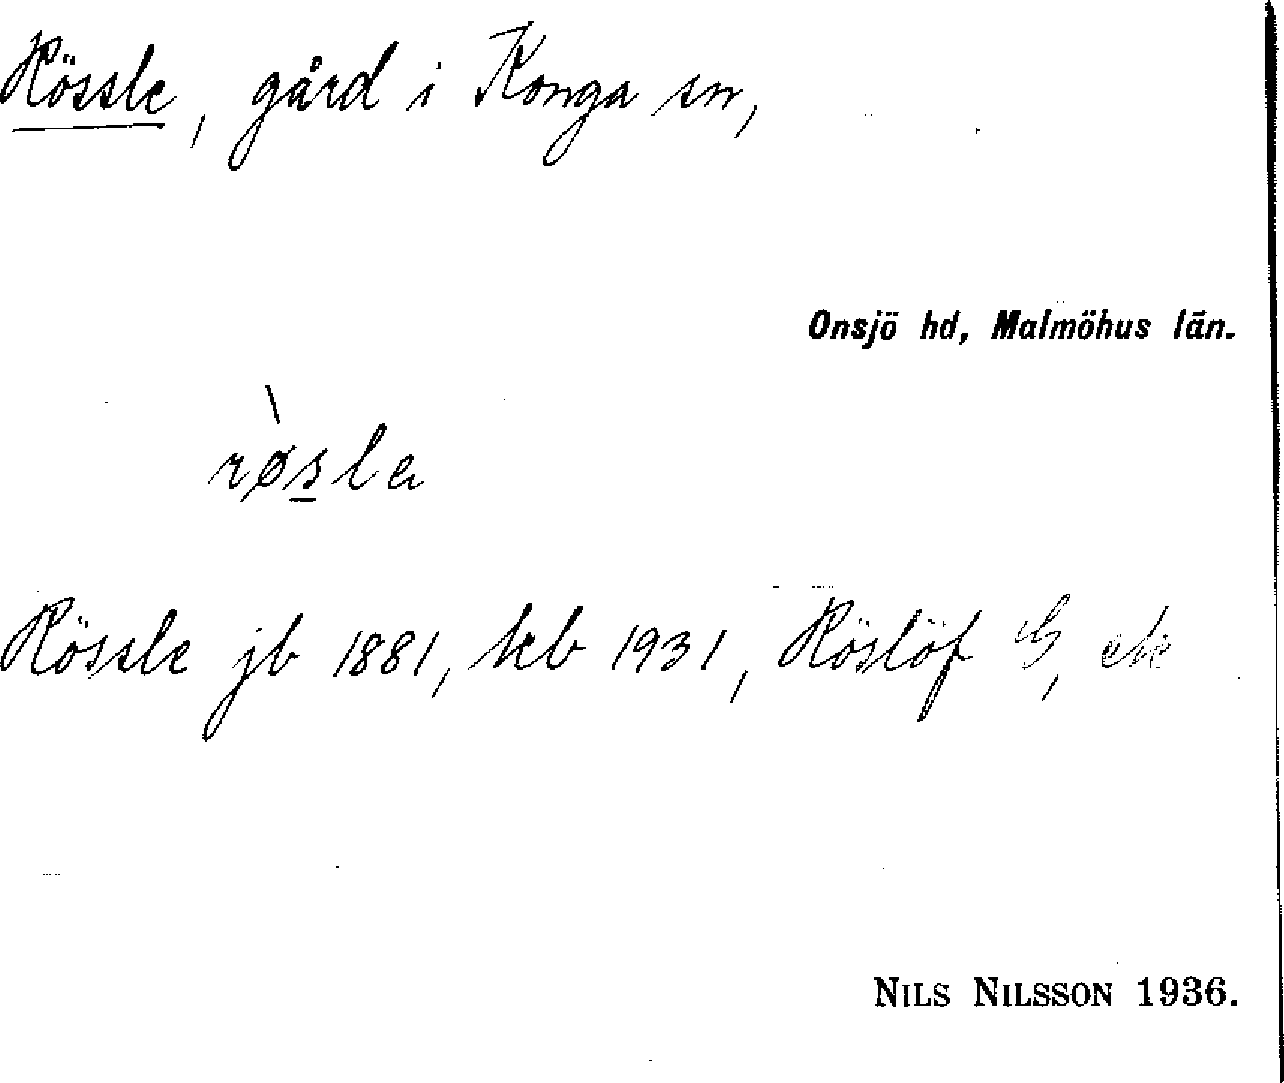 Rössle, gård i Konga sn,
Onsjö hd, Malmöhus län.
røsla
Rössle jb 1881, kb 1931, Röslöf G, ek
NILS NILSSON 1936.